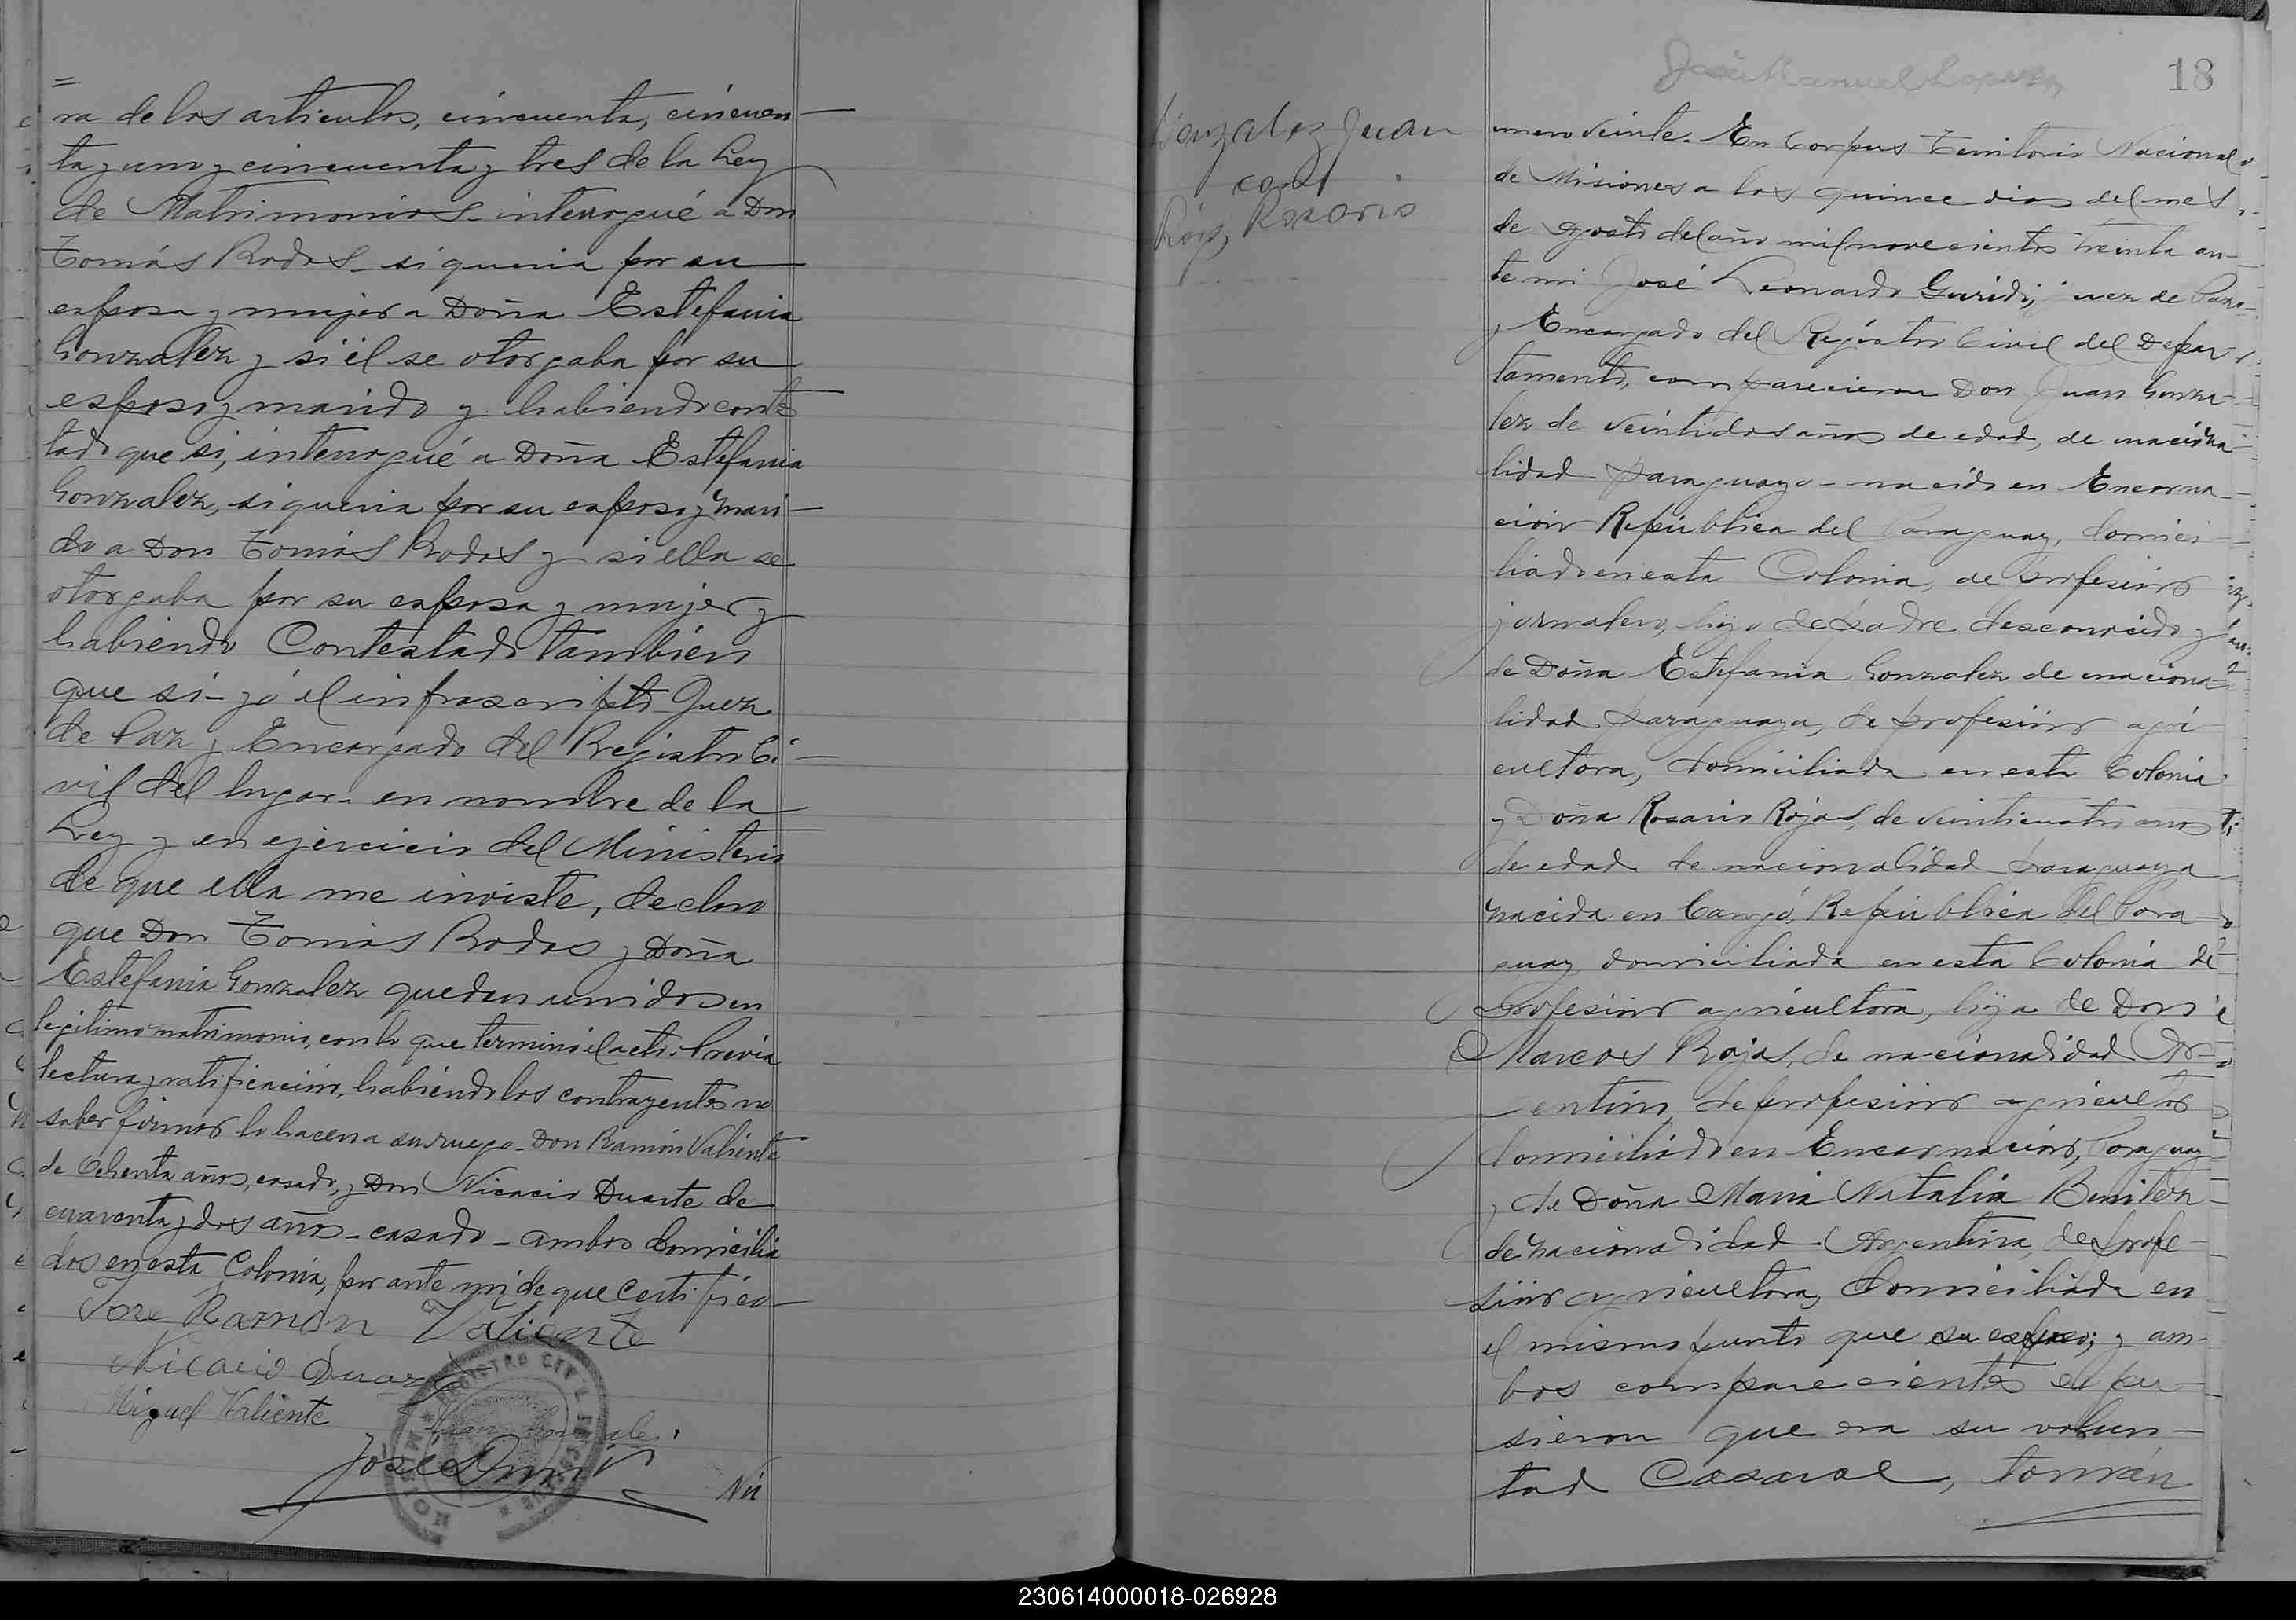 ra de los articulos, cincuenta, cincuen-
ta y uno y cincuenta y tres de la Ley
de Matrimonios interrogué a Don
Tomás Rodas si queria por su
esposa y mujer a Doña Estefania
Gonzalez y si él se otorgaba por su
esposo y marido y habiendo contes
tado que si, interrogué a Doña Estefania
Gonzalez, si queria por su esposo y mari-
do a Don Tomás Rodas y si ella se
otorgaba por su esposa y mujer y
habiendo Contestado también
que si - yó el infrascripto Juez
de Paz y Encargado del Registro Ci-
vil del lugar en nombre de la
Ley y en ejercicio del Ministerio
de que ella me inviste, declaro
que Don Tomás Rodas y Doña
Estefania Gonzalez quedan unidos en
legitimo matrimonio, con lo que terminó el acto. Previa
lectura y ratificación, habiendo los contrayentes no
saber firmar lo hacen a su ruego - Don Ramón Valiente
de Ochenta años, casado, y Don Nicacio Duarte de
cuarenta y dos años - casado - ambos domicilia
dos en esta Colonia, por ante mi de que Certifico-
Jose Ramón Valiente
Nicacio Duarte
Miguel Valiente
José
Nú
18
Gonzalez Juan
con
Rojas, Rosario
mero Veinte. En Corpus Territorio Nacional
de Misiones a los quince dias del mes
de Agosto del año mil novecientos treinta an-
te mi José Leonardo Guridi, juez de Paz
y Encargado del Registro Civil del Depar-
tamento, comparecieron Don Juan Gonza-
lez de Veintidos años de edad, de naciona
lidad paraguayo - nacido en Encarna-
ción República del Paraguay, domici-
liado en esta Colonia, de profesión
jornalero, hijo de padre desconocido y
de Doña Estefania Gonzalez de naciona-
lidad paraguaya, de profesión agri
cultora, domiciliada en esta Colonia
y Doña Rosario Rojas, de Veinticuatro años
de edad de nacionalidad paraguaya
nacida en Cangó, República del Para-
guay domiciliada en esta Colonia de
profesión agricultora, hija de Don
Marcos Rojas, de nacionalidad Ar-
gentino, de profesión agricultor
domiciliado en Encarnación, Paraguay
y de Doña Maria Natalia Benitez
de nacionalidad Argentina, de profe-
sión agricultora, domiciliada en
el mismo punto que su esposo; y am-
bos comparecientes expu-
sieron que era su volun-
tad Casarse, tomán
230614000018-026928